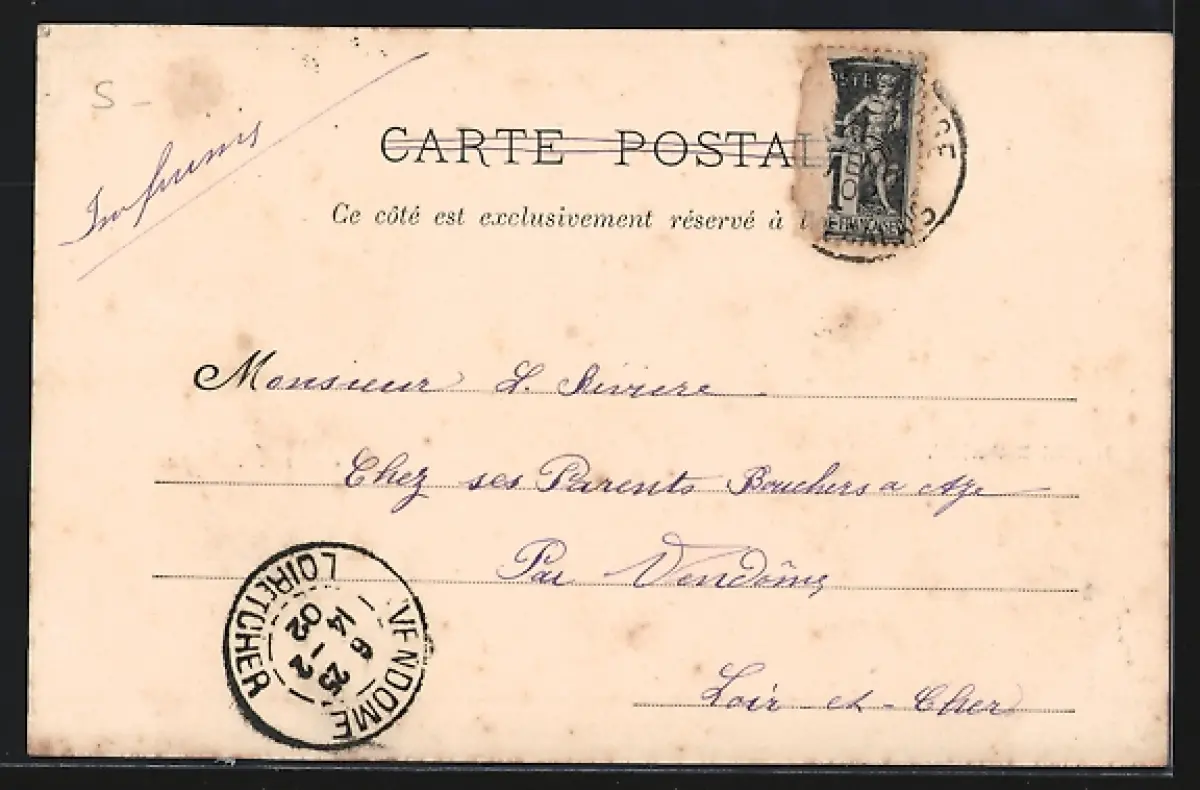 S -
Imprimés
CARTE POSTAL
Ce côté est exclusivement réservé à l'
1
E FRANÇAISE
Monsieur L. Riviere
Chez ses Parents Bouchers a Aze
Par Vendôme
Loir et - Cher
VENDOME
6 25
14 - 2
02
LOIR ET CHER